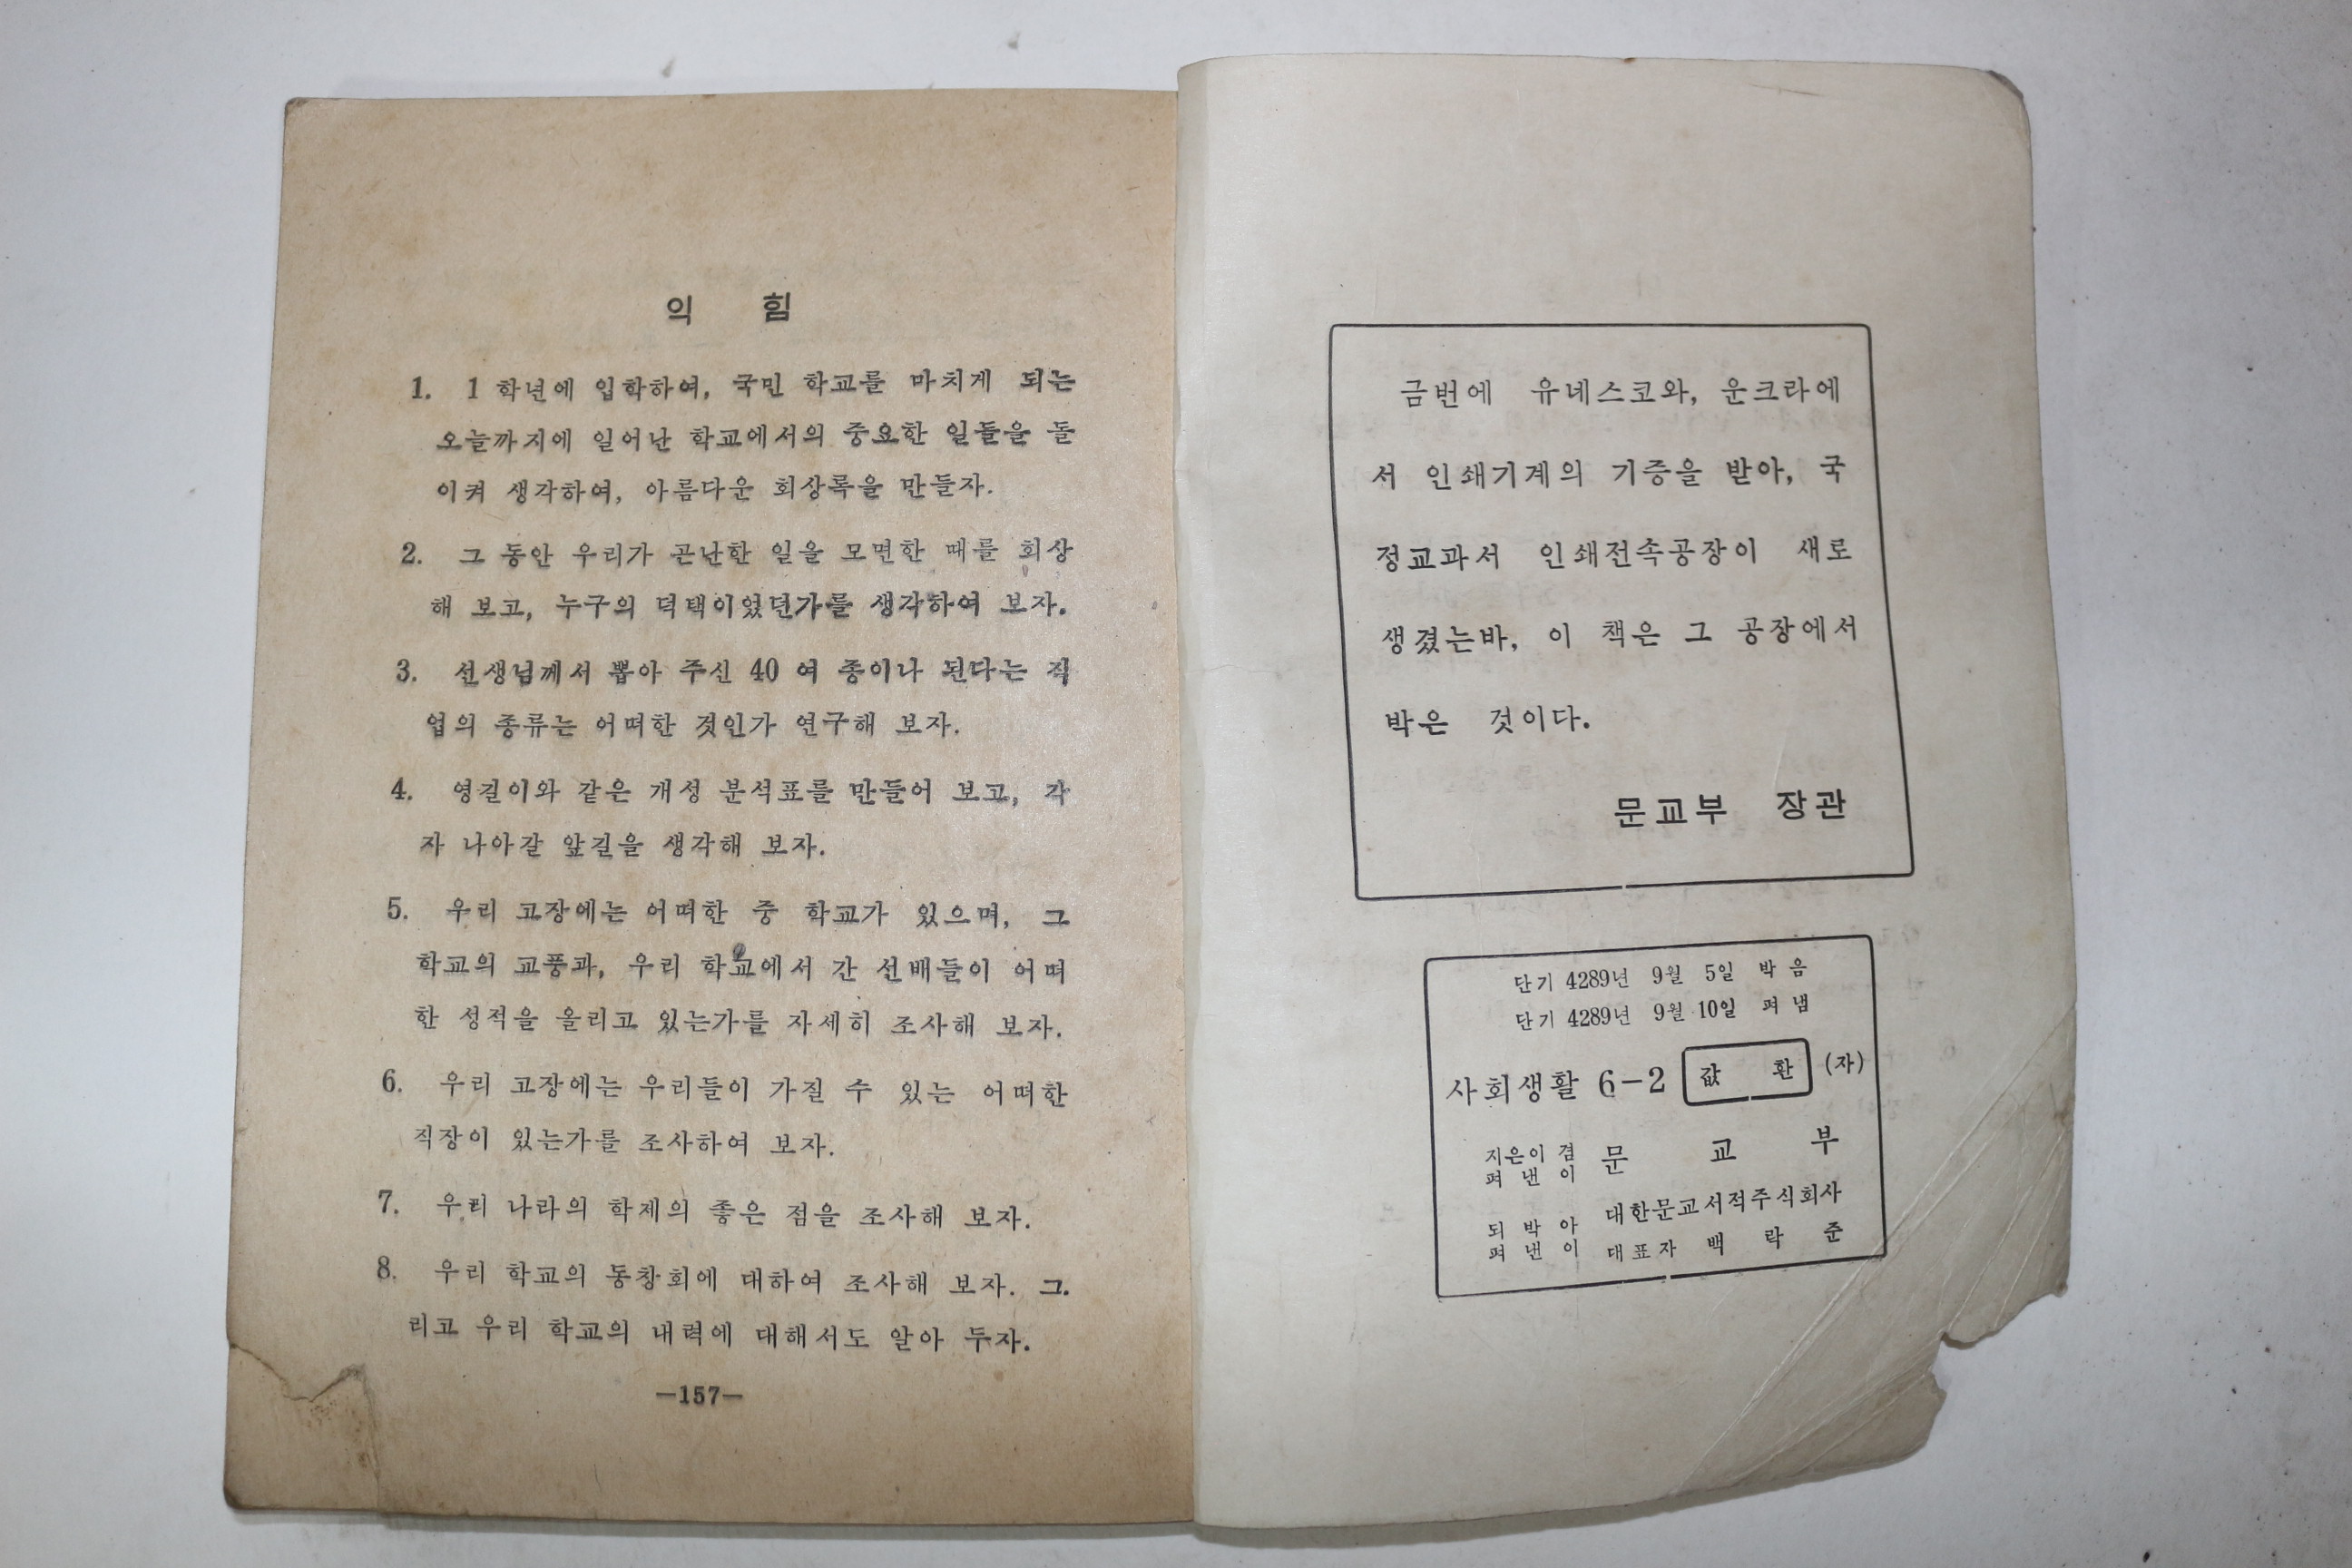 익 힘
1. 1 학년에 입학하여, 국민 학교를 마치게 되는
오늘까지에 일어난 학교에서의 중요한 일들을 돌
이켜 생각하여, 아름다운 회상록을 만들자.
2. 그 동안 우리가 곤난한 일을 모면한 때를 회상
해 보고, 누구의 덕택이었던가를 생각하여 보자.
3. 선생님께서 뽑아 주신 40 여 종이나 된다는 직
업의 종류는 어떠한 것인가 연구해 보자.
4. 영길이와 같은 개성 분석표를 만들어 보고, 각
자 나아갈 앞길을 생각해 보자.
5. 우리 고장에는 어떠한 중 학교가 있으며, 그
학교의 교풍과, 우리 학교에서 간 선배들이 어떠
한 성적을 올리고 있는가를 자세히 조사해 보자.
6. 우리 고장에는 우리들이 가질 수 있는 어떠한
직장이 있는가를 조사하여 보자.
7. 우리 나라의 학제의 좋은 점을 조사해 보자.
8. 우리 학교의 동창회에 대하여 조사해 보자. 그.
리고 우리 학교의 내력에 대해서도 알아 두자.
—157—
금번에 유네스코와, 운크라에
서 인쇄기계의 기증을 받아, 국
정교과서 인쇄전속공장이 새로
생겼는바, 이 책은 그 공장에서
박은 것이다.
문교부 장관
단기 4289년 9월 5일 박음
단기 4289년 9월 10일 펴냄
사회생활 6-2 값 환 (자)
지은이 겸
펴 낸 이
문 교 부
되 박 아
펴 낸 이
대한문교서적주식회사
대표자 백 락 준